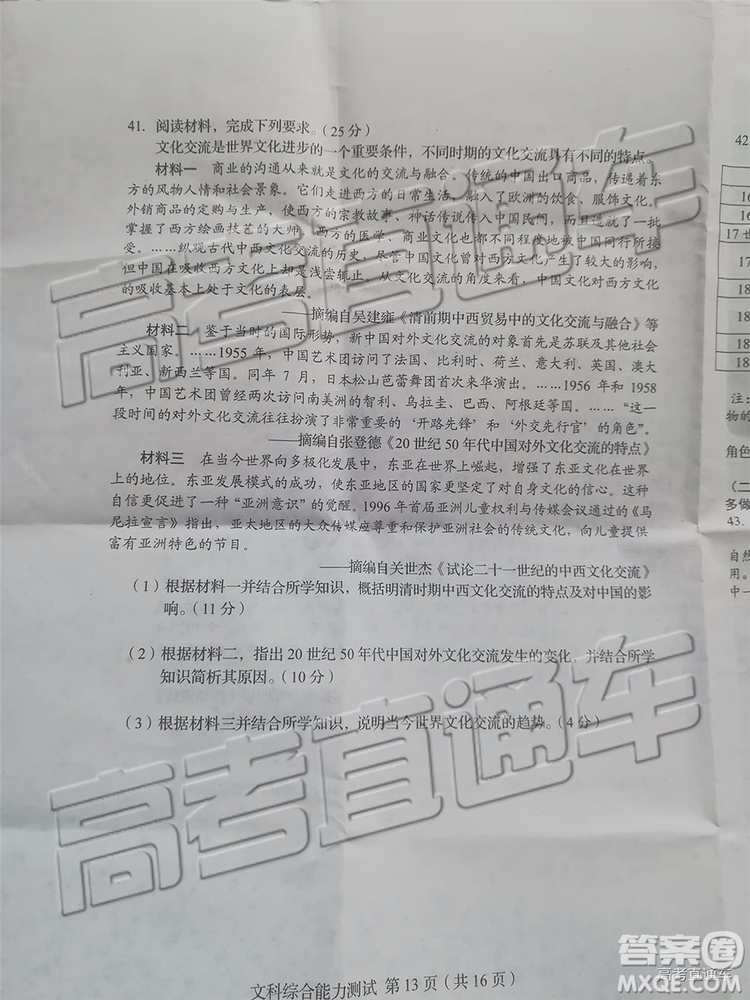 41. 阅读材料，完成下列要求。（25分）
文化交流是世界文化进步的一个重要条件，不同时期的文化交流具有不同的特点。
材料一 商业的沟通从来就是文化的交流与融合。传统的中国出口商品，传递着东
方的风物人情和社会景象。它们走进西方的日常生活，融入了欧洲的饮食、服饰文化。
外销商品的定购与生产，使西方的宗教故事、神话传说传入中国民间，而且造就了一批
掌握了西方绘画技艺的大师。西方的医学、商业文化的先进之处被中国同行所接
受。……纵观古代中西文化交流的历史，尽管中国文化曾对西方文化产生了较大的影响，
但中国在吸收西方文化上却是浅尝辄止，从文化交流的角度来看，中国文化对西方文化
的吸收基本上处于文化的表层。
——摘编自吴建雍《清前期中西贸易中的文化交流与融合》等
材料二 鉴于当时的国际形势，新中国对外文化交流的对象首先是苏联及其他社会
主义国家。……1955年，中国艺术团访问了法国、比利时、荷兰、意大利、英国、澳大
利亚、新西兰等国。同年7月，日本松山芭蕾舞团首次来华演出。……1956年和1958
年，中国艺术团曾经两次访问南美洲的智利、乌拉圭、巴西、阿根廷等国。……“这一
段时间的对外文化交流往往扮演了非常重要的‘开路先锋’和‘外交先行官’的角色”。
——摘编自张登德《20世纪50年代中国对外文化交流的特点》
材料三 在当今世界向多极化发展中，东亚在世界上崛起，增强了东亚文化在世界
上的地位。东亚发展模式的成功，使东亚地区的国家更坚定了对自身文化的信心。这
自信里产生了一种“亚洲意识”的觉醒。1996年首届亚洲儿童权利与传媒会议通过的《马
尼拉宣言》指出，亚太地区的大众传媒应尊重和保护亚洲社会的传统文化，向儿童提供
富有亚洲特色的节目。
——摘编自关世杰《试论二十一世纪的中西文化交流》
（1）根据材料一并结合所学知识，概括明清时期中西文化交流的特点及对中国的影
响。（11分）
（2）根据材料二，指出20世纪50年代中国对外文化交流发生的变化，并结合所学
知识简析其原因。（10分）
（3）根据材料三并结合所学知识，说明当今世界文化交流的趋势。（4分）
文科综合能力测试 第13页（共16页）
42.
16
16
17世
18
18
18
注：
物的
角色
（二
多做
43.
自然
用。
中一
高考直通车
高考直通车
答案卷
高考直通车